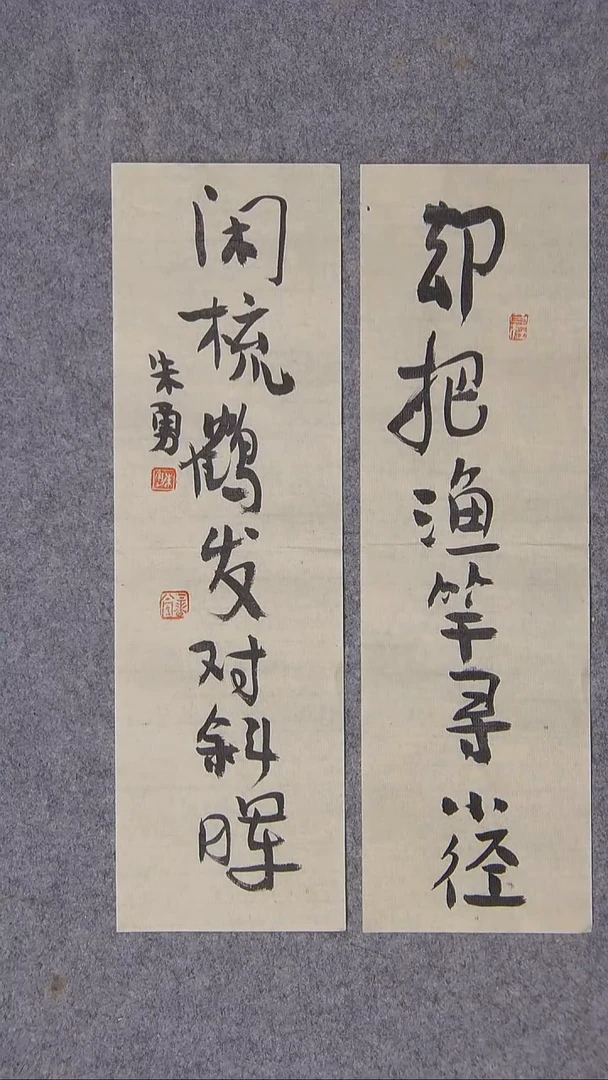 却把渔竿寻小径
闲梳鹤发对斜晖
朱勇